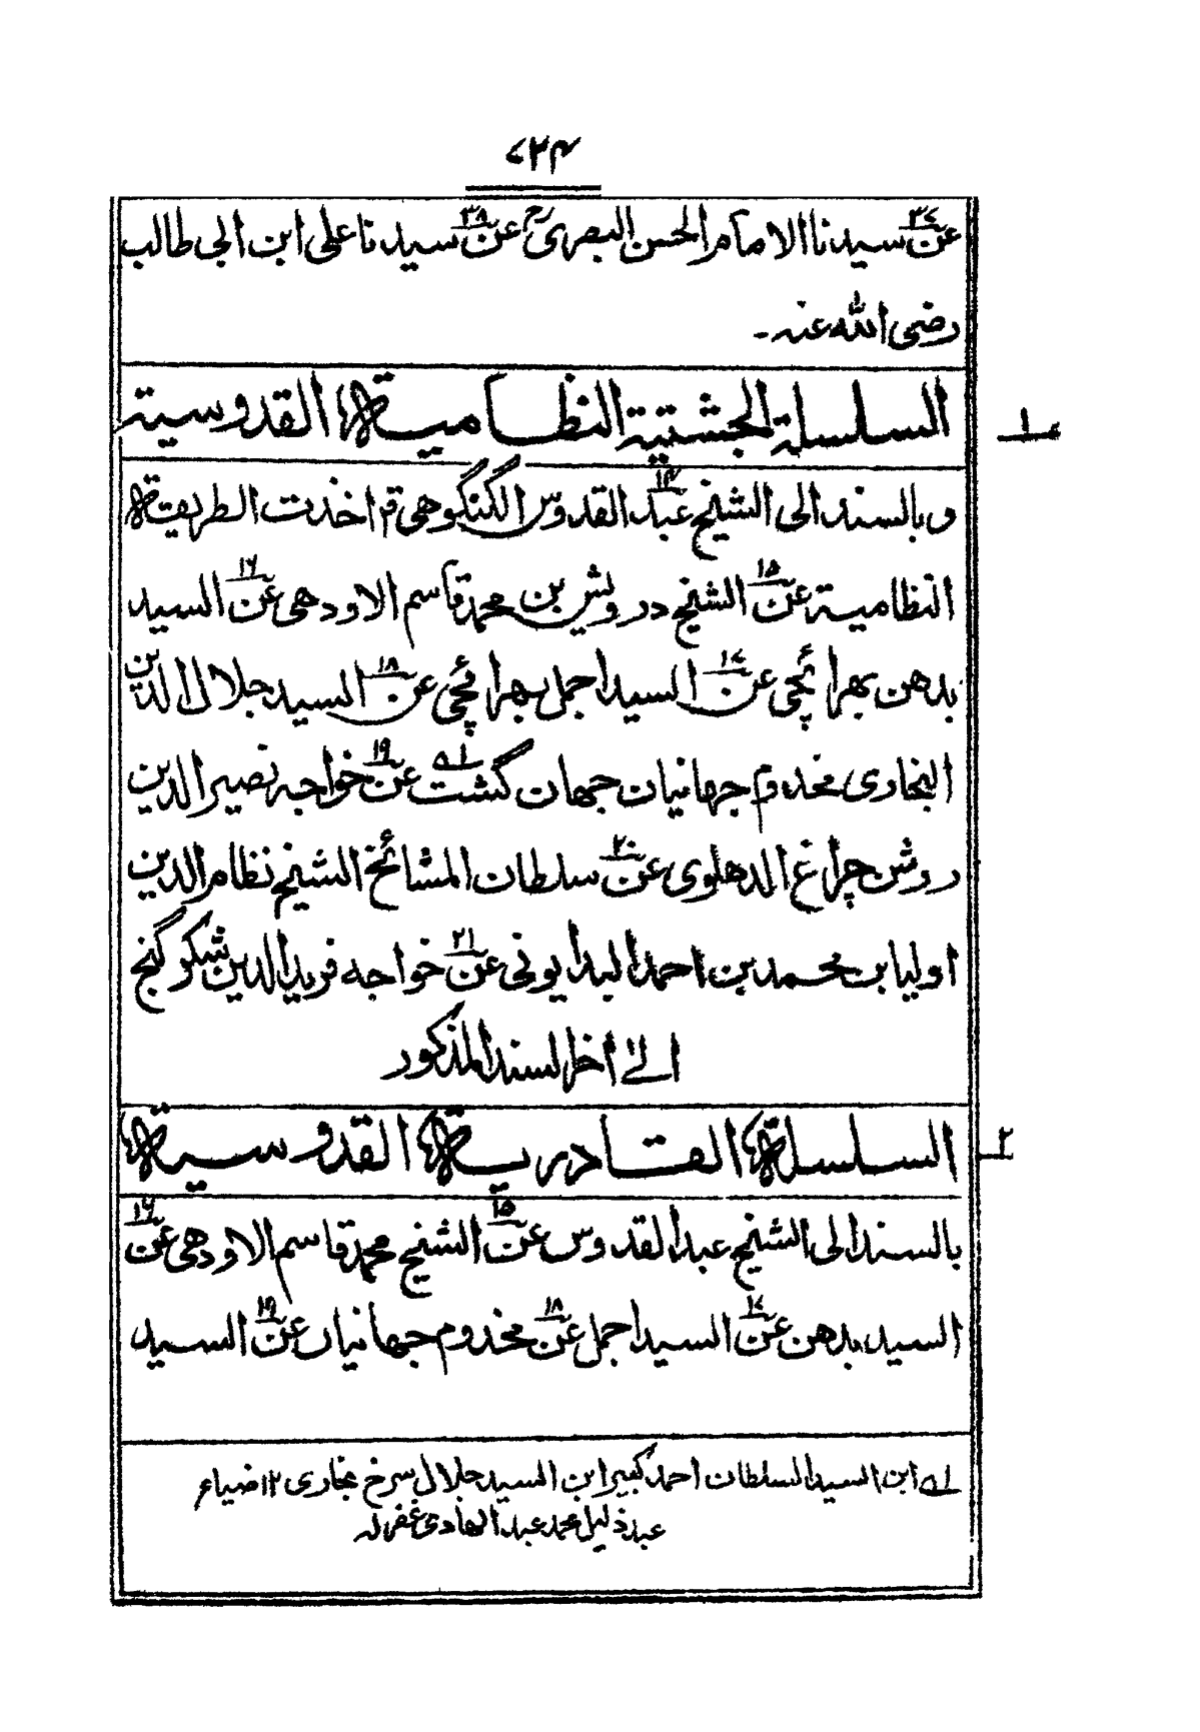 ۷۲۴
عن۳۷ سیدنا الامام الحسن البصریؒ عن۳۸ سیدنا علی ابن ابی طالب
رضی اللہ عنہ۔
۱
السلسلۃ الچشتیۃ النظامیۃ القدوسیۃ
وبالسند الی الشیخ عبد۱۴ القدوس الگنگوهی قد اخذت الطریقۃ
النظامیۃ عن۱۵ الشیخ درویش بن محمد قاسم الاودهی عن۱۶ السید
بدهن بهرائچی عن۱۷ السید اجمل بهرائچی عن۱۸ السید جلال الدین
البخاری مخدوم جهانیان جهان گشت۱ عن۱۹ خواجہ نصیر الدین
روشن چراغ الدهلوی عن۲۰ سلطان المشائخ الشیخ نظام الدین
اولیا بن محمد بن احمد البدایونی عن۲۱ خواجہ فرید الدین شکر گنج
الیٰ اخر السند المذکور
۲
السلسلۃ القادریۃ القدوسیۃ
بالسند الی الشیخ عبد القدوس عن۱۵ الشیخ محمد قاسم الاودهی عن۱۶
السید بدهن عن۱۷ السید اجمل عن۱۸ مخدوم جهانیاں عن۱۹ السید
۱ ابن السید السلطان احمد کبیر ابن السید جلال سرخ بخاری ۱۲ ضیاء
عبد ذلیل محمد عبد الهادی غفرلہ